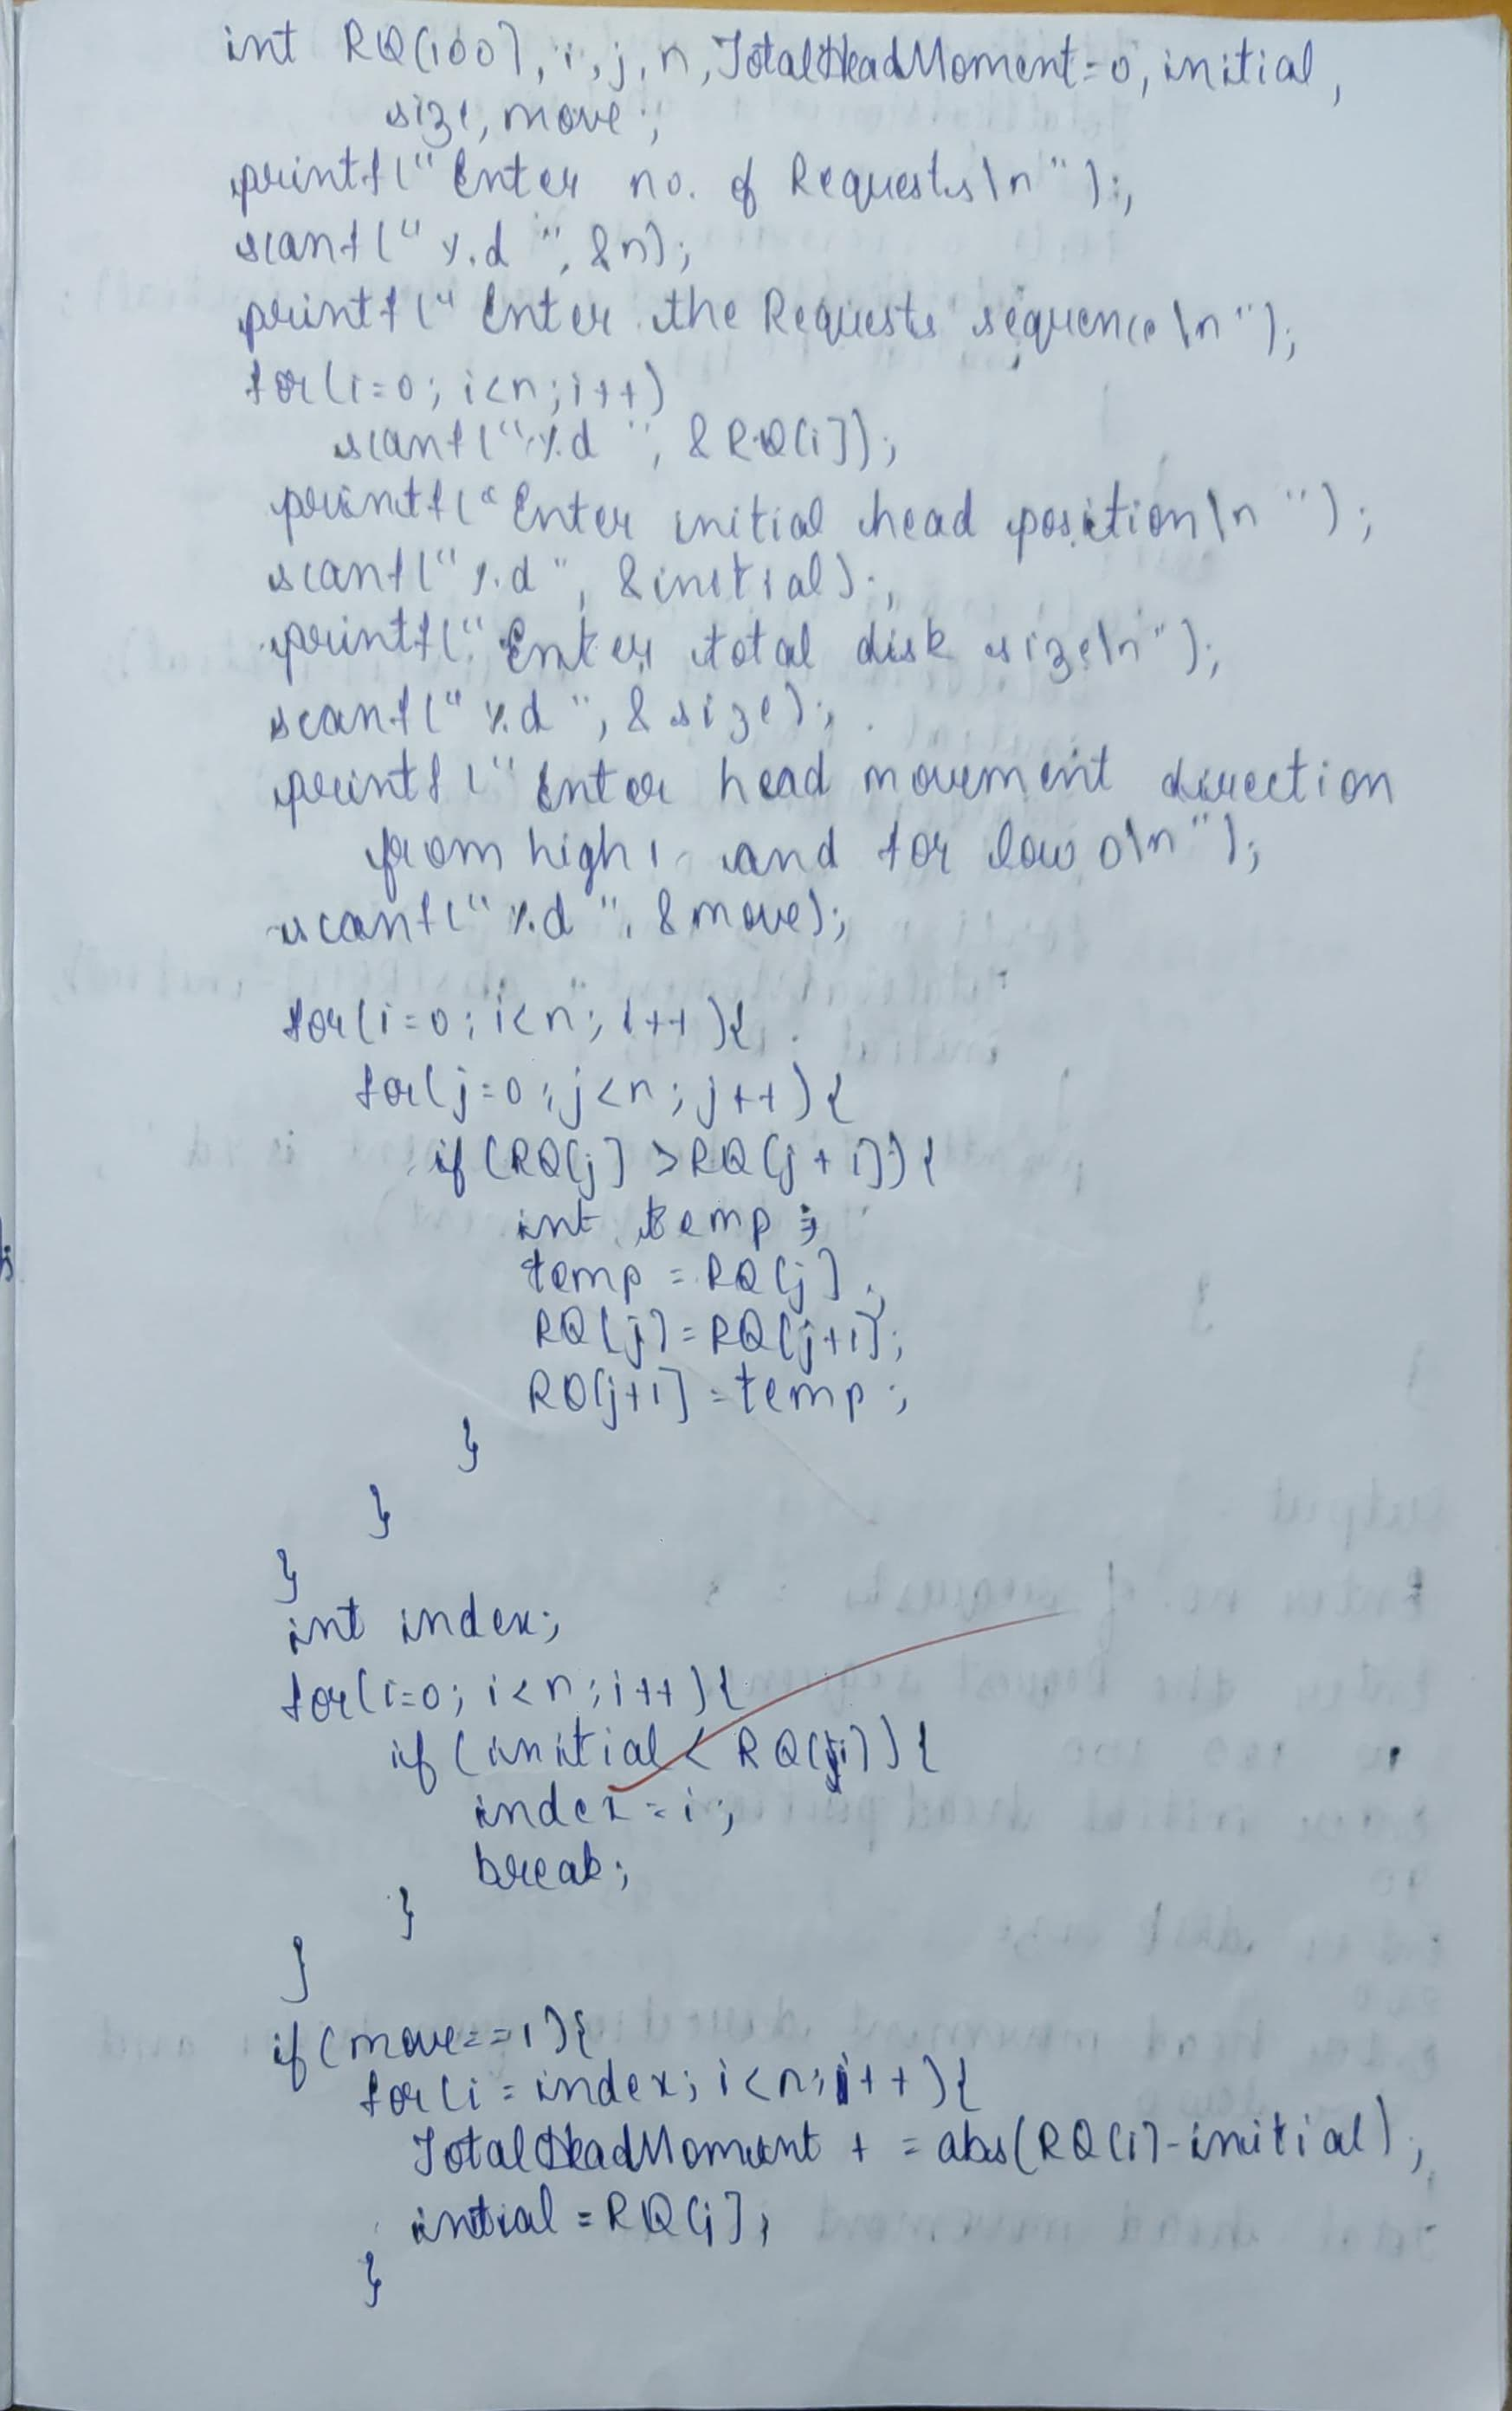 int RQ[100], i, j, n, TotalHeadMoment=0, initial,
size, move;
printf("Enter no. of Requests\n");
scanf("%d", &n);
printf("Enter the Requests sequence\n");
for(i=0; i<n; i++)
scanf("%d", &RQ[i]);
printf("Enter initial head position\n");
scanf("%d", &initial);
printf("Enter total disk size\n");
scanf("%d", &size);
printf("Enter head movement direction
from high 1 and for low 0\n");
scanf("%d", &move);
for(i=0; i<n; i++){
for(j=0; j<n; j++){
if(RQ[j] >RQ[j+1]){
int temp;
temp = RQ[j];
RQ[j]=RQ[j+1];
RQ[j+1]=temp;
}
}
}
int index;
for(i=0; i<n; i++){
if(initial < RQ[i]){
index = i;
break;
}
}
if(move==1){
for(i=index; i<n; i++){
TotalHeadMoment += abs(RQ[i]-initial);
initial = RQ[i];
}